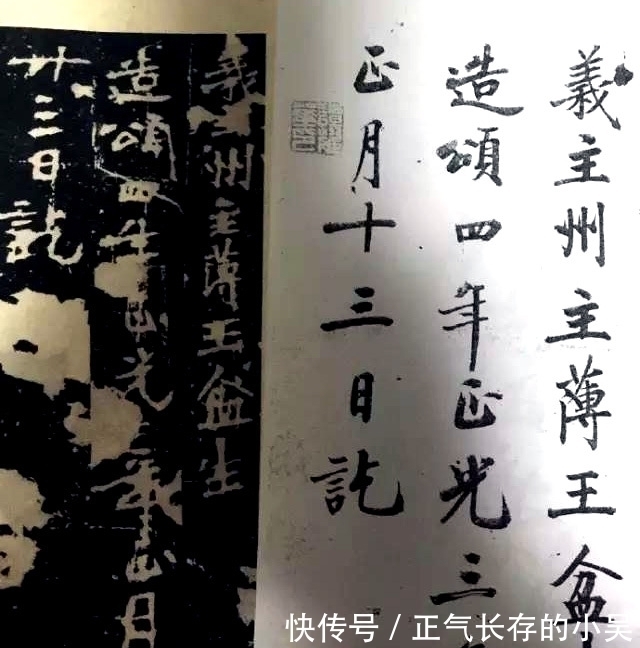 義主州主薄王盆
造頌四年正光三
正月十三日訖
義州主薄王盆生
造頌四年正光三年正月
廿三日訖
快传号 / 正气长存的小吴